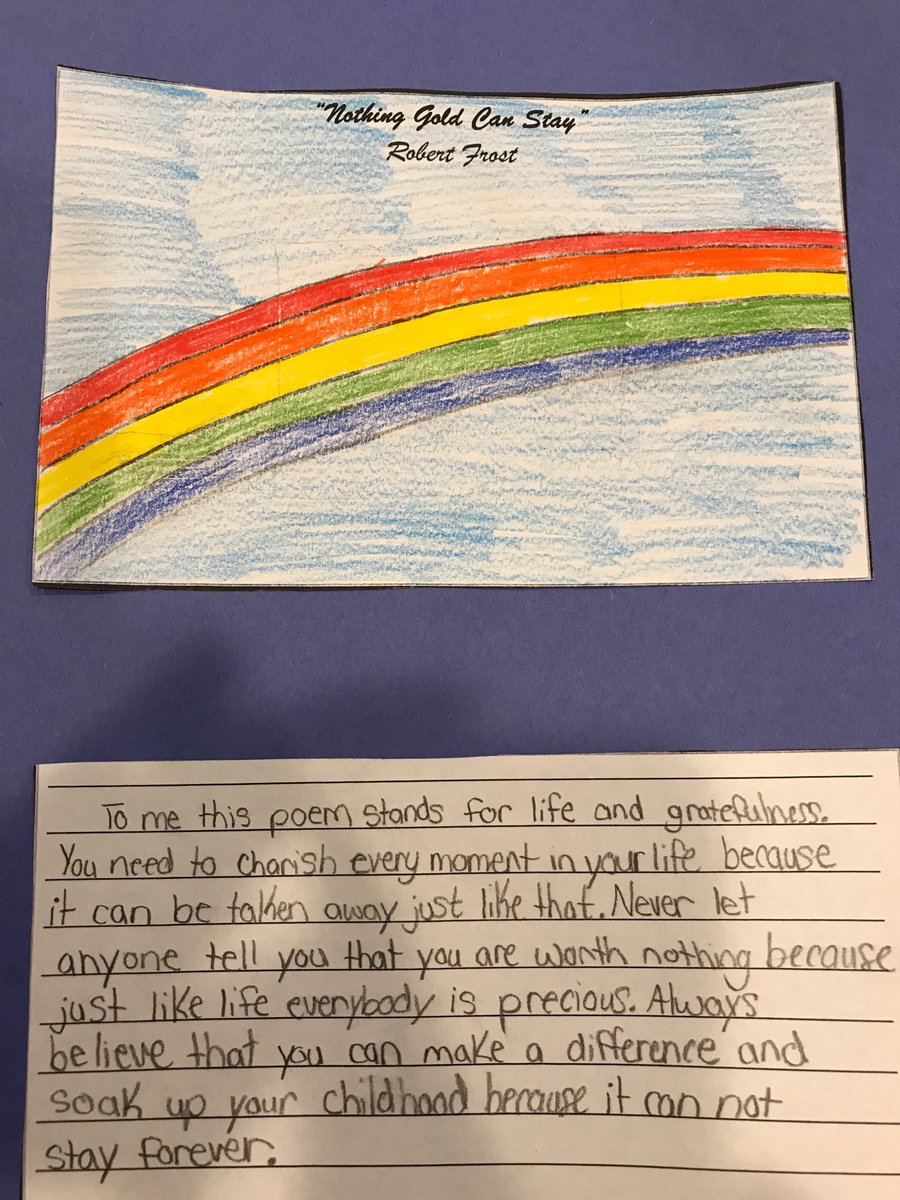 "Nothing Gold Can Stay"
Robert Frost
To me this poem stands for life and gratefulness.
You need to charish every moment in your life because
it can be taken away just like that. Never let
anyone tell you that you are worth nothing because
just like life everybody is precious. Always
believe that you can make a difference and
soak up your childhood because it can not
stay forever.